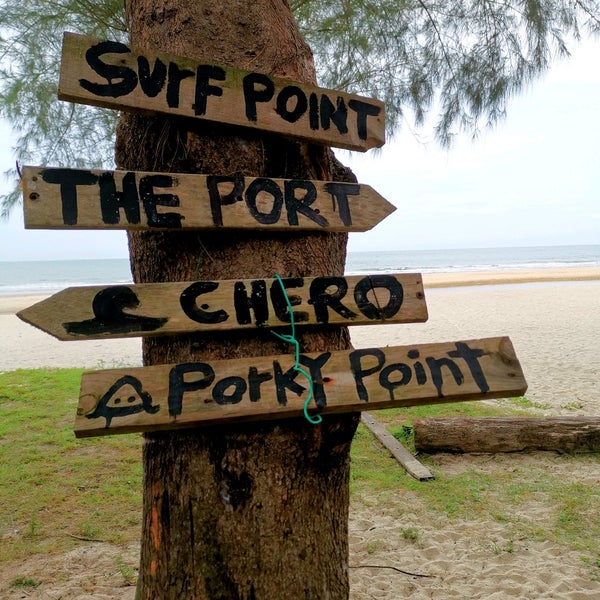 SURF POINT
THE PORT
CHERO
Porky Point